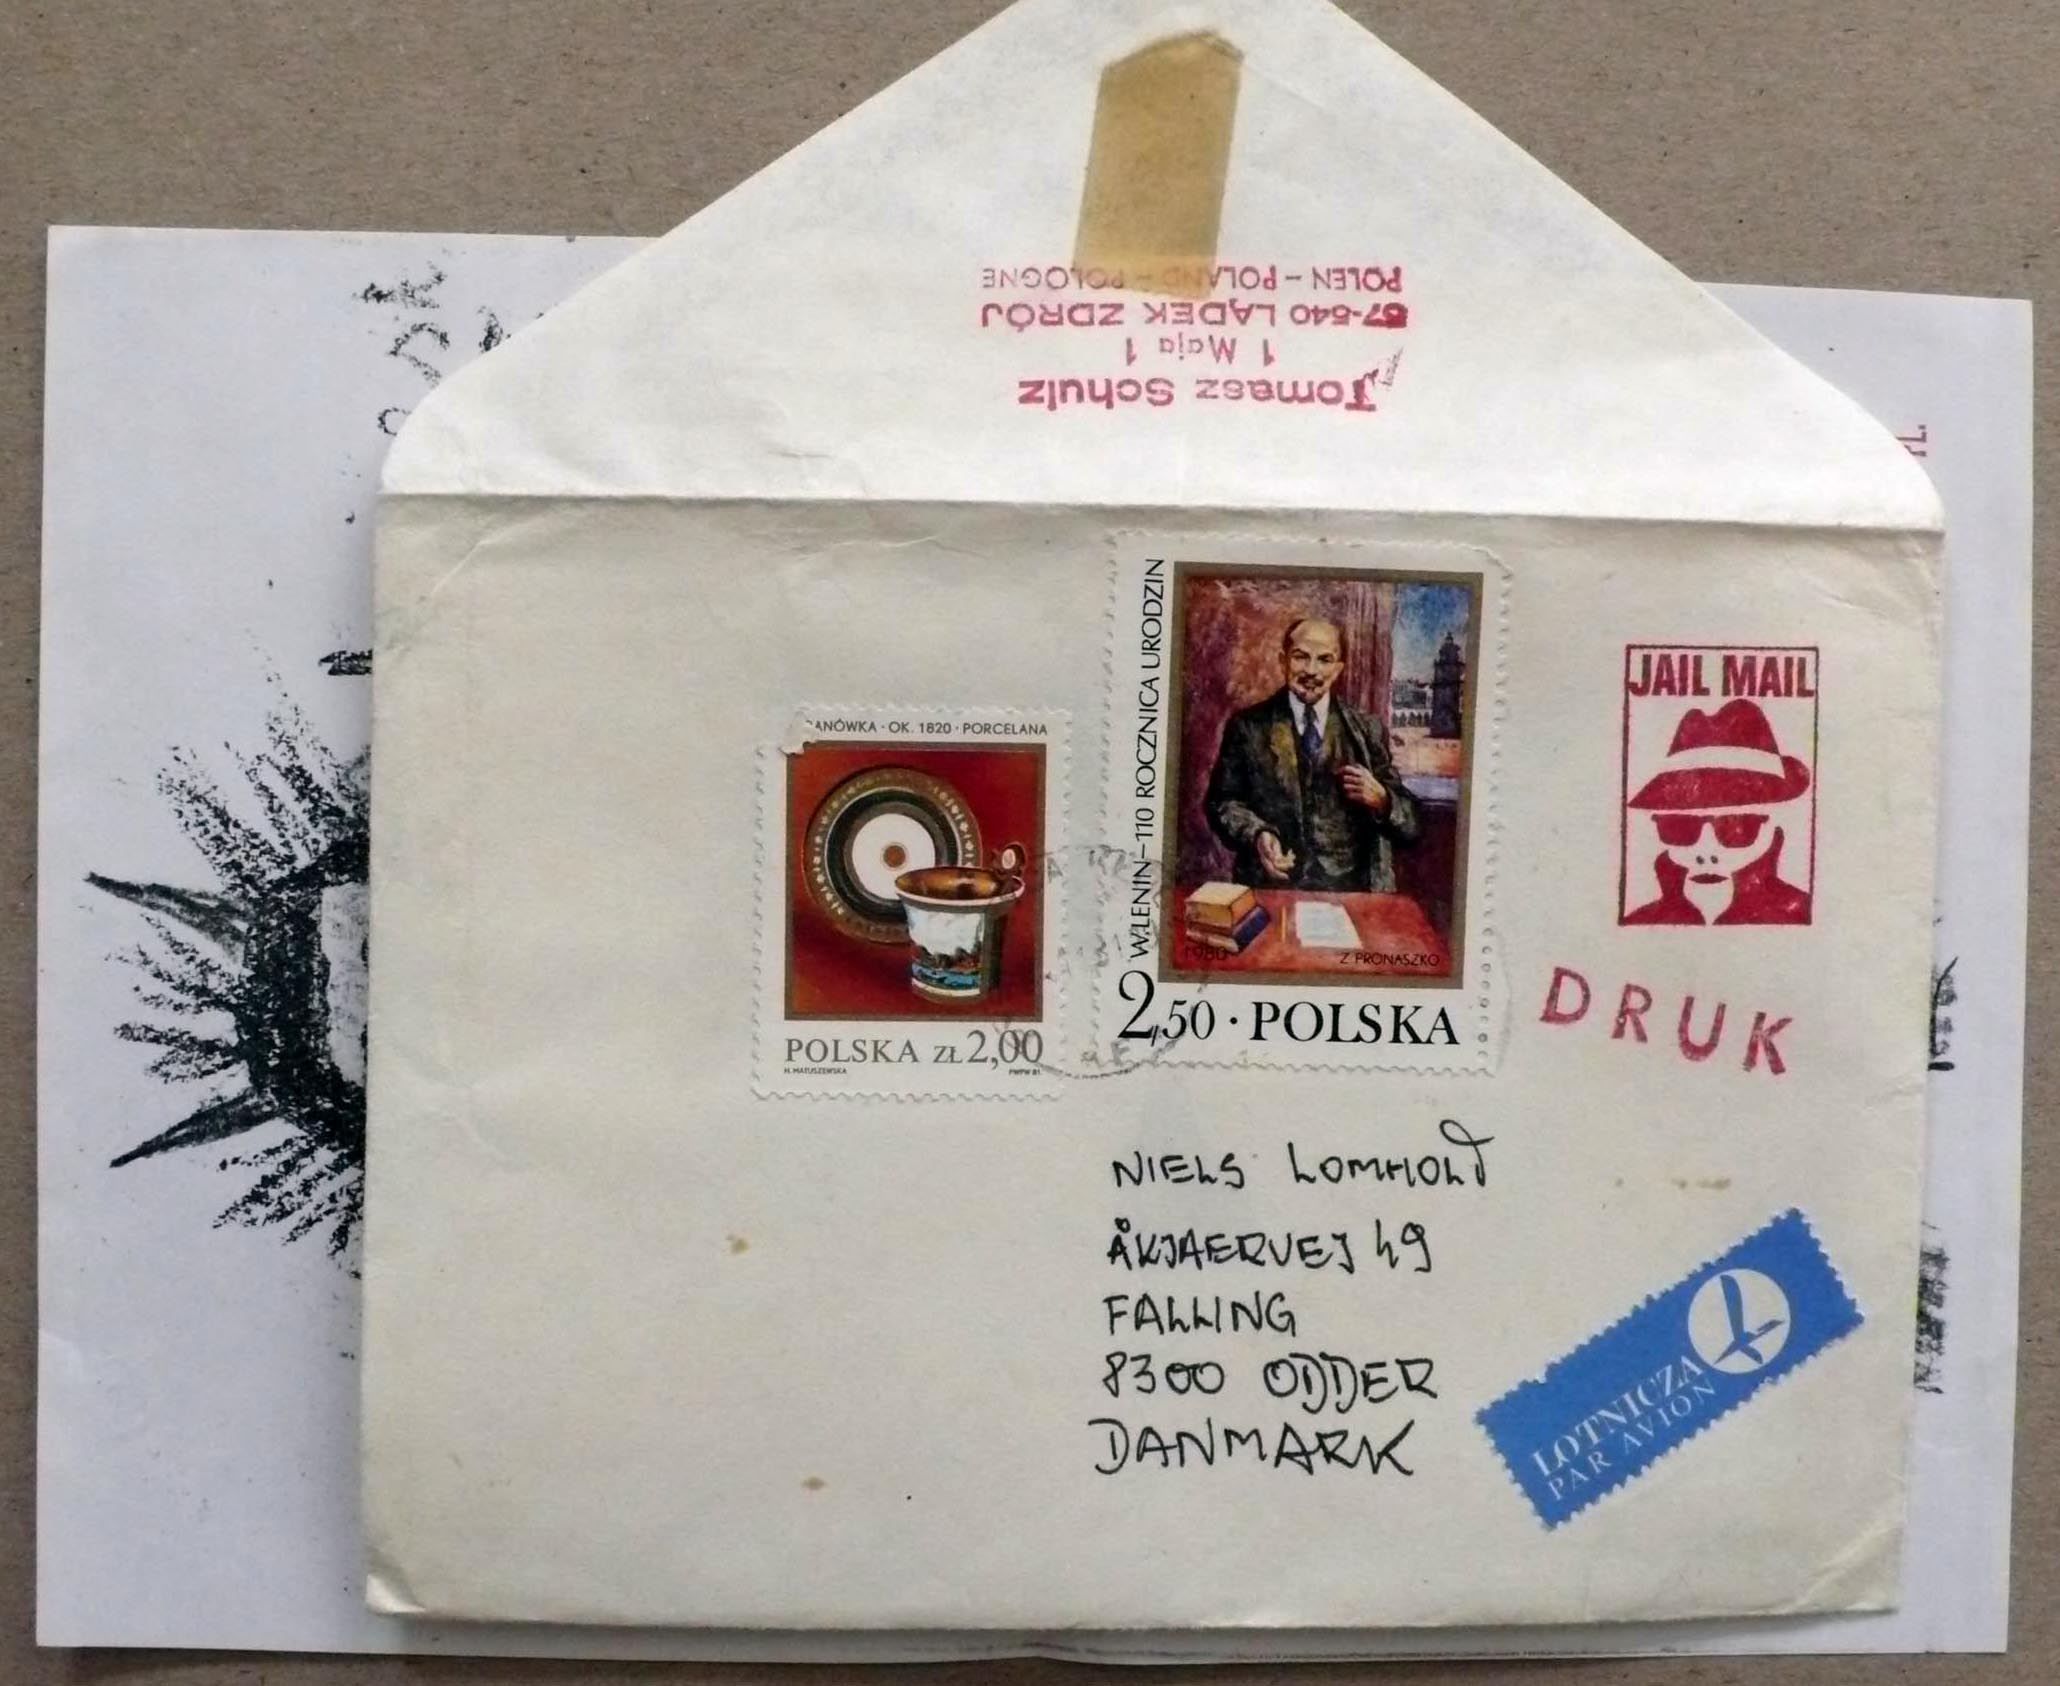 Tomasz Schulz
1 Maja 1
57-540 LĄDEK ZDRÓJ
POLEN – POLAND – POLOGNE
ANÓWKA · OK. 1820 · PORCELANA
POLSKA ZŁ 2,00
H. MATUSZEWSKA
PWPW 81.
W.LENIN–110 ROCZNICA URODZIN
1980
Z PRONASZKO
2,50 · POLSKA
JAIL MAIL
DRUK
NIELS LOMHOLT
ÅKJAERVEJ 49
FALLING
8300 ODDER
DANMARK
LOTNICZA
PAR AVION